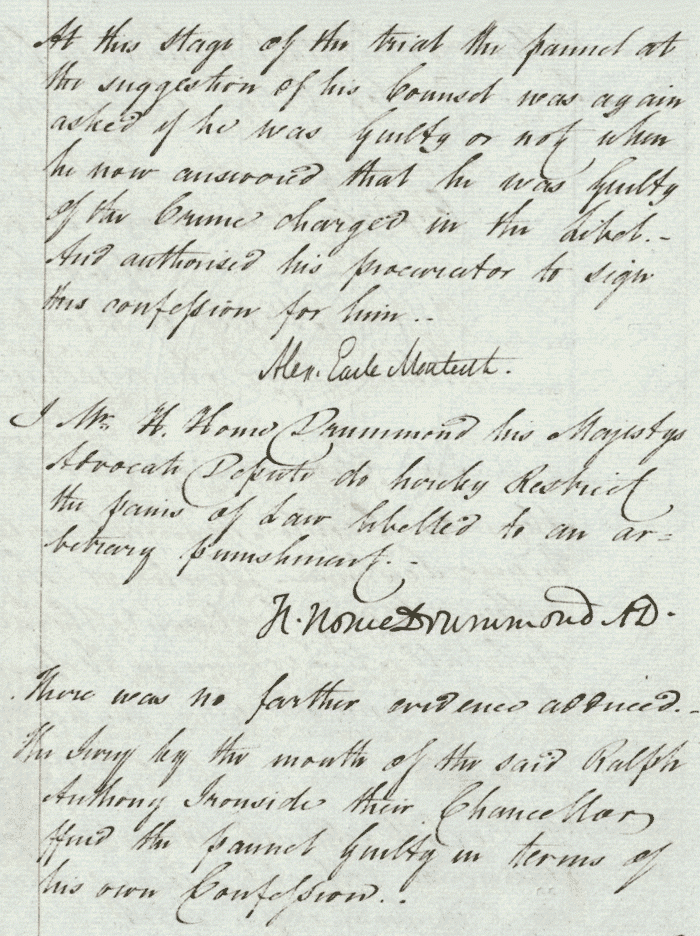 At this stage of the trial the pannel at
the suggestion of his Counsel was again
asked if he was Guilty or not when
he now answered that he was Guilty
of the Crime charged in the Libel.-
And authorised his procurator to sign
this confession for him..
Alex. Earle Monteith.
I Mr. H. Home Drummond his Majestys
Advocate Depute do hereby Restrict
the pains of Law libelled to an ar=
bitrary punishment.-
H. Home Drummond AD.
There was no farther evidence adduced.-
The Jury by the mouth of the said Ralph
Anthony Ironside their Chancellor
ffind the pannel Guilty in terms of
his own Confession..